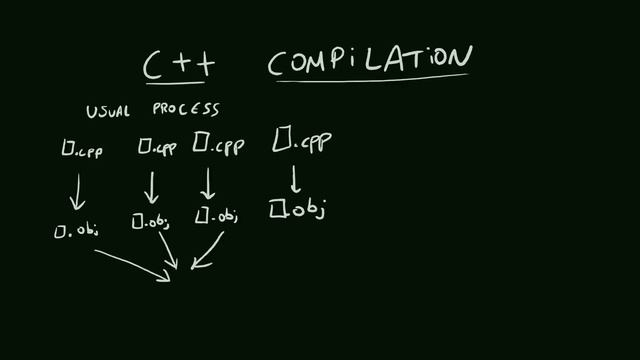 C++ COMPiLATiON
USUAL PROCESS
.cpp .cpp .cpp .cpp
.obj .obj .obj .obj